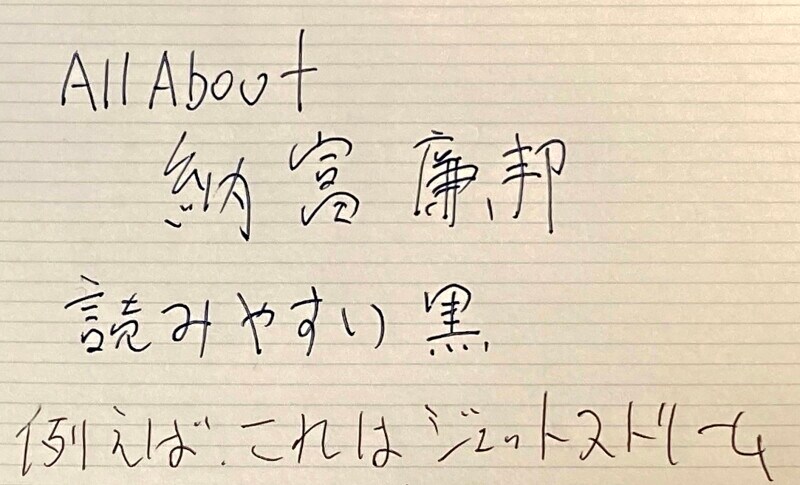 All About
納富廉邦
読みやすい黒
例えば、これはジェットストリーム